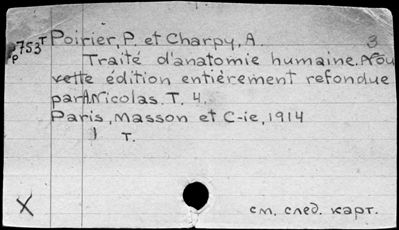 T Poirier, P. et Charpy, A. 3
P753
P
Traité d'anatomie humaine. Nou
vette édition entièrement refondue
par A. Nicolas. T. 4.
Paris, Masson et C-ie, 1914
1 T.
X
см. след. карт.